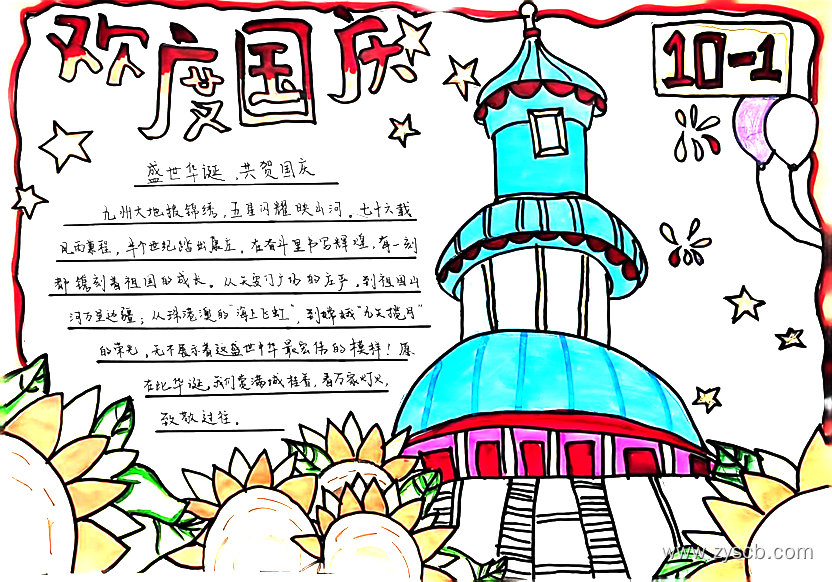 欢度国庆
10-1
盛世华诞,共贺国庆
九州大地披锦绣,五星闪耀映山河。七十六载
风雨兼程,半个世纪踏出展丘。在奋斗里书写辉煌,每一刻
都镌刻着祖国的成长。从天安门广场的庄严,到祖国山
河万里边疆;从珠港澳的"海上飞虹",到嫦娥"九天揽月"
的荣光,无不展示着这盛世中华最宏伟的模样!愿
在此华诞,我们喜满城挂着,看万家灯火,
致敬过往。
www.zyscb.com